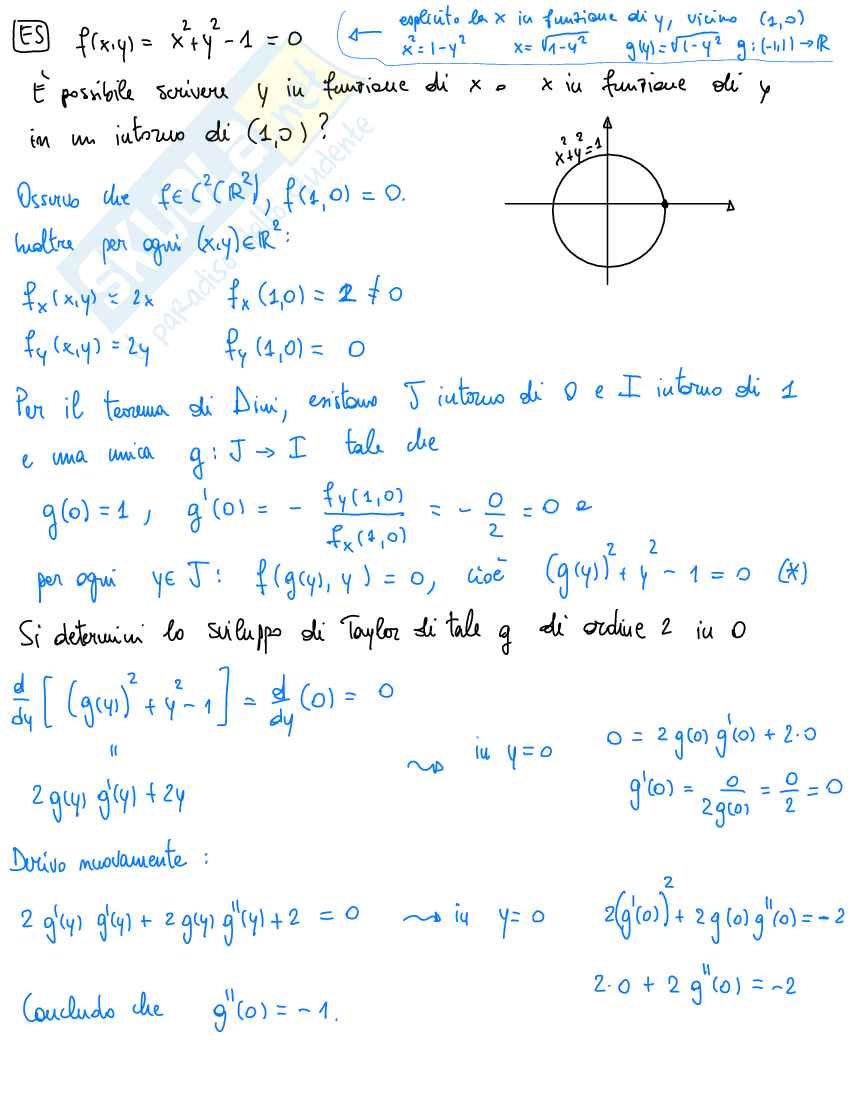 ES f(x,y) = x²+y²-1 = 0
esplicito la x in funzione di y, vicino (1,0)
x²=1-y² x=√1-y² g(y)=√1-y² g:(-1,1)→ℝ
È possibile scrivere y in funzione di x o x in funzione di y
in un intorno di (1,0)?
x²+y²=1
Osservo che f∈C²(ℝ²), f(1,0) = 0.
Inoltre per ogni (x,y)∈ℝ²:
fx(x,y) = 2x fx(1,0) = 2 ≠ 0
fy(x,y) = 2y fy(1,0) = 0
Per il teorema di Dini, esistono J intorno di 0 e I intorno di 1
e una unica g: J → I tale che
g(0) = 1, g'(0) = - fy(1,0)/fx(1,0) = - 0/2 = 0 e
per ogni y∈J: f(g(y), y) = 0, cioè (g(y))²+y²-1 = 0 (*)
Si determini lo sviluppo di Taylor di tale g di ordine 2 in 0
d/dy [(g(y))²+y²-1] = d/dy (0) = 0
"
2g(y) g'(y) + 2y
⤳ in y=0 0 = 2g(0)g'(0) + 2·0
g'(0) = 0/2g(0) = 0/2 = 0
Derivo nuovamente:
2g'(y) g'(y) + 2g(y)g''(y)+2 = 0 ⤳ in y=0 2(g'(0))²+2g(0)g''(0)=-2
2·0 + 2g''(0) = -2
Concludo che g''(0) = -1.
SKUOLA.net
paradiso dello studente